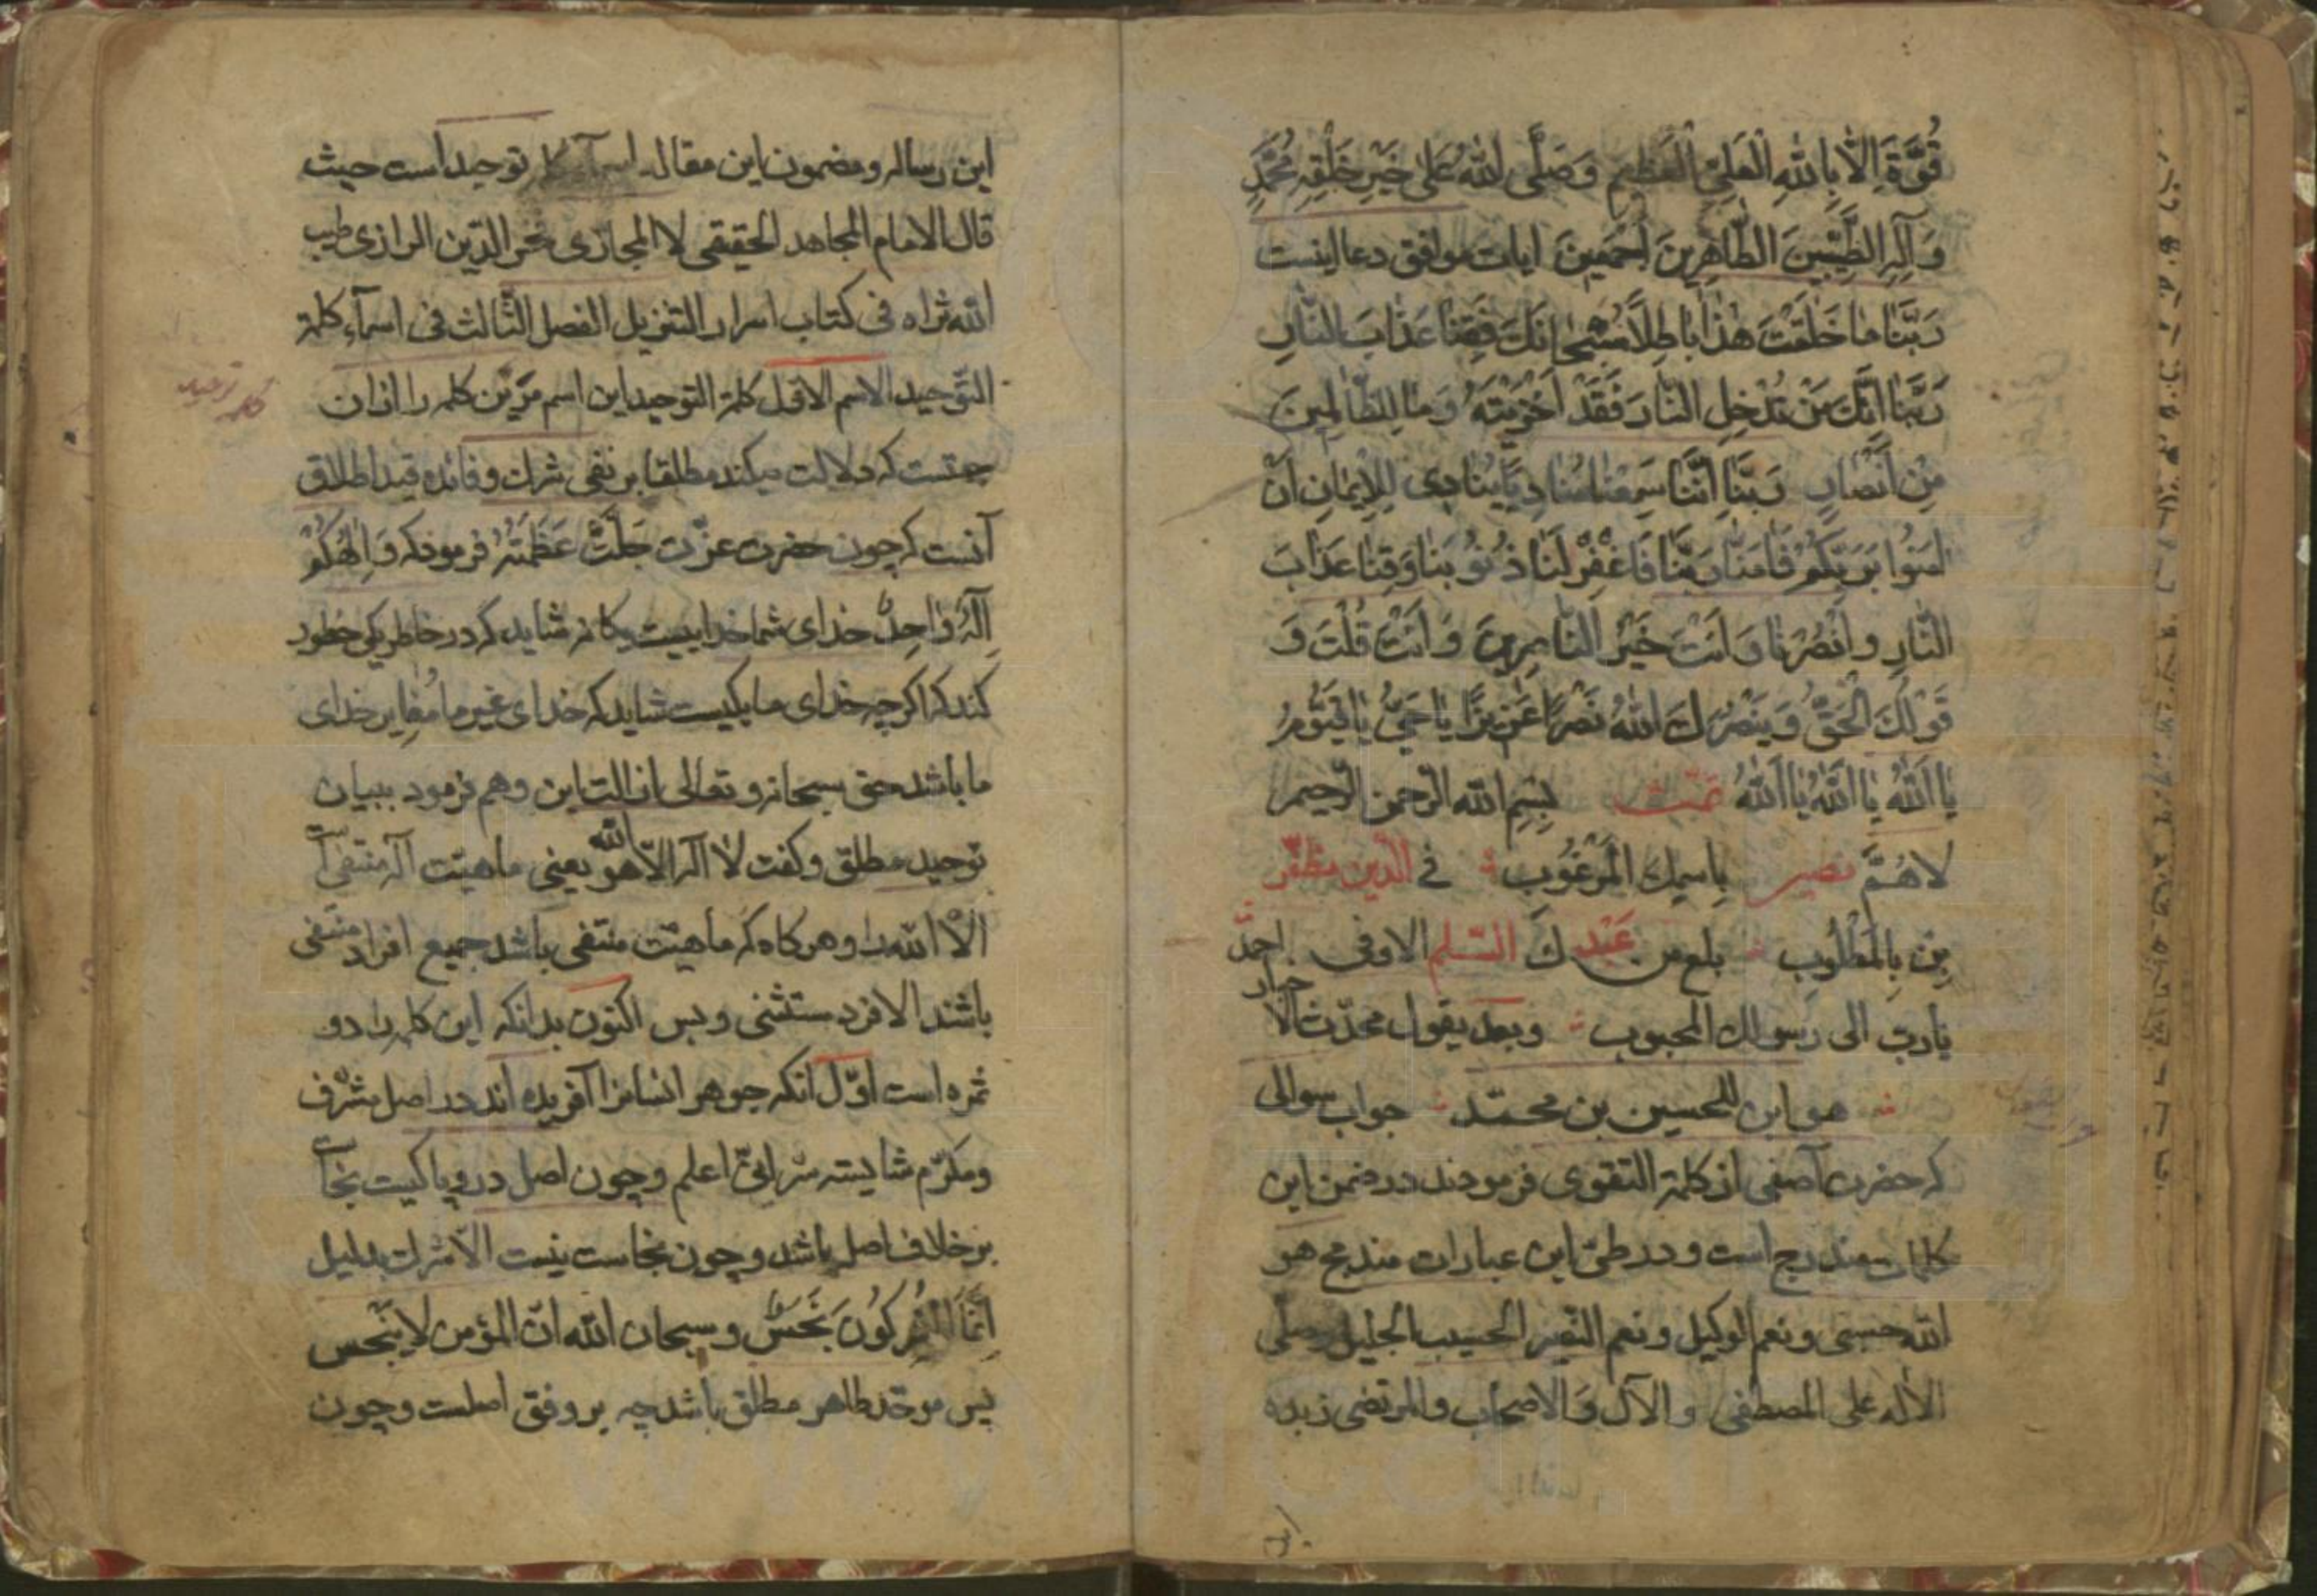 قُوَّةَ اِلَّا بِاللّٰهِ الْعَلِيِّ الْعَظِيمِ وَصَلَّى اللّٰهُ عَلَى خَيْرِ خَلْقِهِ مُحَمَّدٍ
وَآلِهِ الطَّيِّبِينَ الطَّاهِرِينَ اَجْمَعِينَ ايات موافق دعا اينست
رَبَّنَا مَا خَلَقْتَ هٰذَا بَاطِلًا سُبْحَانَكَ فَقِنَا عَذَابَ النَّارِ
رَبَّنَا اِنَّكَ مَنْ تُدْخِلِ النَّارَ فَقَدْ اَخْزَيْتَهُ وَمَا لِلظَّالِمِينَ
مِنْ اَنْصَارٍ رَبَّنَا اِنَّنَا سَمِعْنَا مُنَادِيًا يُنَادِي لِلْاِيمَانِ اَنْ
اٰمِنُوا بِرَبِّكُمْ فَاٰمَنَّا رَبَّنَا فَاغْفِرْ لَنَا ذُنُوبَنَا وَقِنَا عَذَابَ
النَّارِ وَانْصُرْنَا وَاَنْتَ خَيْرُ النَّاصِرِينَ وَاَنْتَ قُلْتَ وَ
قَوْلُكَ الْحَقُّ وَيَنْصُرَكَ اللّٰهُ نَصْرًا عَزِيزًا يَا حَيُّ يَا قَيُّومُ
يَا اَللّٰهُ يَا اَللّٰهُ يَا اَللّٰهُ تمّت بِسْمِ اللّٰه الرّحمن الرّحيم
لَاهُمَّ نصير بِاسمِكَ الْمَرْغُوب في الدّين مظفّر
مِنْ بِالْمَطْلُوب بلغ من عَبْدِكَ السّلم الاوفى احمد
يا ربّ الى رسولك المحبوب وبعد يقول محدّث الا
خبار
هو ابن المحسين بن محمّد جواب سوالى
كه حضرت آصفى از كلمة التقوى فرمودند در ضمن اين
كلمات مندرج است و در طىّ اين عبارات مندمج هو
اللّه حسبى ونعم الوكيل ونعم النّصير الحسيب الجليل وصلّى
الاله على المصطفى والآل وَالاصحاب والمرتضى زبده
اين رساله ومضمون اين مقاله اسمآء كلمه توحيد است حيث
قال الامام المجاهد الحقيقى لا المجازى فخر الدّين الرازى طيب
اللّه ثراه فى كتاب اسرار التنزيل الفصل الثّالث فى اسمآء كلمة
التّوحيد الاسم الاوّل كلمة التوحيد اين اسم مر اين كلمه را از ان
كلمه توحيد
جهتست كه دلالت ميكند مطلقا بر نفى شرك وفائده قيد اطلاق
آنست كه چون حضرت عزّت جَلَّتْ عَظَمَتُهُ فرمود كه وَاِلٰهُكُمْ
اِلٰهٌ وَاحِدٌ خداى شما خداييست يكانه شايد كه در خاطر يكى خطور
كند كه اكر چه خداى ما يكيست شايد كه خداى غير ما مُغاير خداى
ما باشد حق سبحانه وتعالى ازالت اين وهم فرمود ببيان
توحيد مطلق وكفت لا اله الّا هو اللّه يعنى ماهيّت آله منتفى است
الّا اللّه را وهر كاه كه ماهيّت منتفى باشد جميع افراد منتفى
باشند الا فرد مستثنى وبس اكنون بدانكه اين كلمه را دو
ثمره است اوّل آنكه جوهر انسانرا آفريده اند در اصل مشرّف
ومكرّم شايسته سرّ انّى اعلم وچون اصل درو پاكيست نجاست
بر خلاف اصل باشد وچون نجاست نيست الّا شرك بدليل
اِنَّمَا الْمُشْرِكُونَ نَجَسٌ وسبحان اللّه انّ المؤمن لا ينجس
پس موحّد طاهر مطلق باشد چه بر وفق اصلست وچون